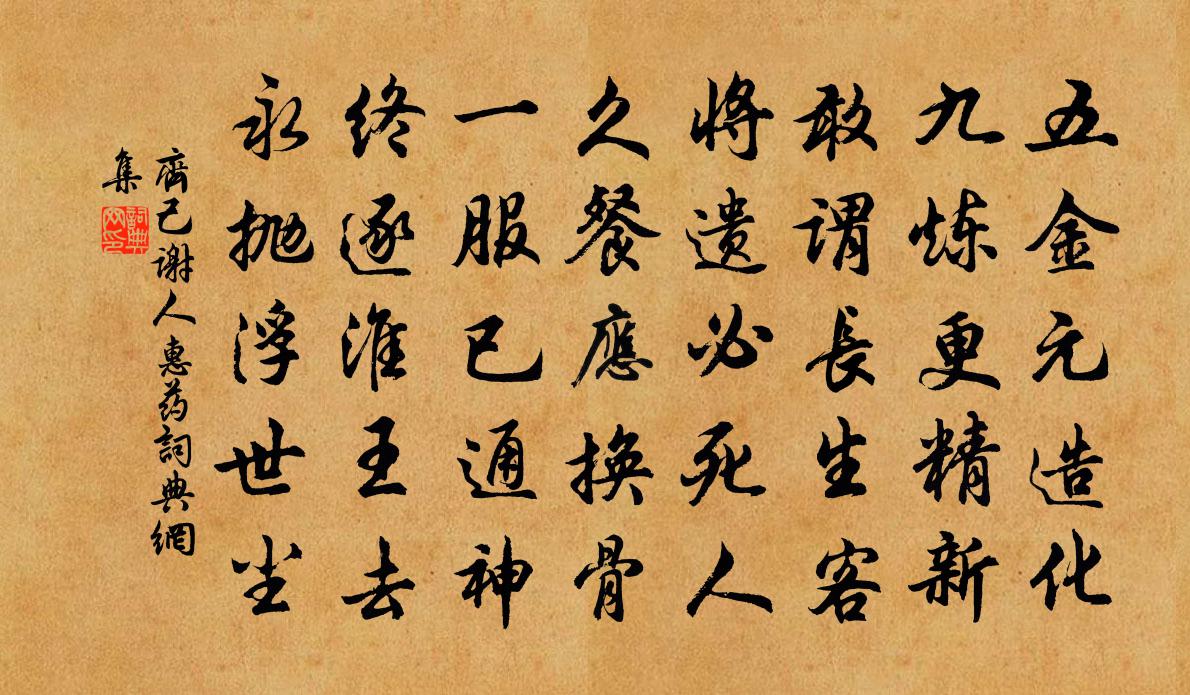 五金元造化
九炼更精新
敢谓長生客
将遗必死人
久餐應换骨
一服已通神
终逐淮王去
永抛浮世尘
齊己谢人惠药詞典網
集
詞典